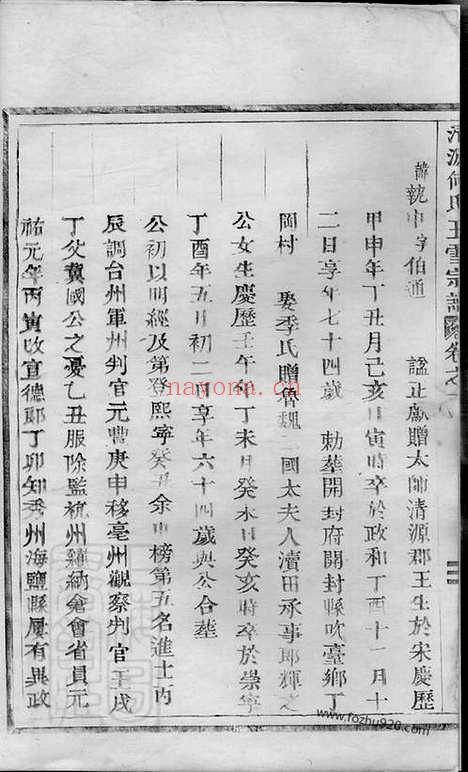 清源何氏王雪宗譜 卷之
諱執中字伯通 諡正獻贈太師清源郡王生於宋慶歷
甲申年丁丑月己亥日寅時卒於政和丁酉十一月十
二日享年七十四歲 勅塟開封府開封縣吹臺鄉丁
岡村 娶季氏贈魯魏二國太夫人瀆田承事郎輝之
公女生慶歷壬午年丁未月癸未日癸亥時卒於崇寧
丁酉年五月初二日享年六十四歲與公合塟
公初以明經及第登熙寧癸丑余中榜第五名進士丙
辰調台州軍州判官元豊庚申移亳州觀察判官壬戌
丁父冀國公之憂乙丑服除監杭州羅納倉會省員元
祐元年丙寅改宣德郎丁卯知秀州海鹽縣屢有異政
nayona.cn
www.fozhu920.com